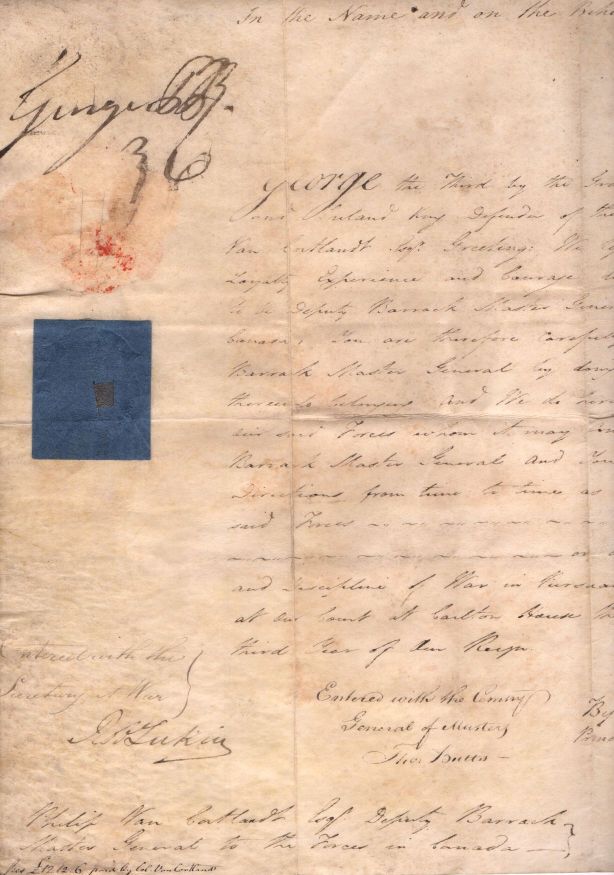 In the Name and on the Beha
George PR.
36
George the Third by the Gra
and Ireland King Defender of the
Van Cortlandt Esqr. Greeting: We
Loyalty Experience and Courage
to be Deputy Barrack Master Gener
Canada; You are therefore carefully
Barrack Master General by doing
thereunto belonging And We do her
our said Forces whom it may
Barrack Master General and You
Directions from time to time as
said Forces
or
and Discipline of War in Pursuan
at Our Court at Carlton House the
third Year of Our Reign.
Entered with the
Secretary at War
Lukin
Entered with the Commy
General of Musters
Thos Butts
By
Philip Van Cortlandt Esqr. Deputy Barrack
Master General to the Forces in Canada
£12.12.6 paid by Col. Van Cortlandt